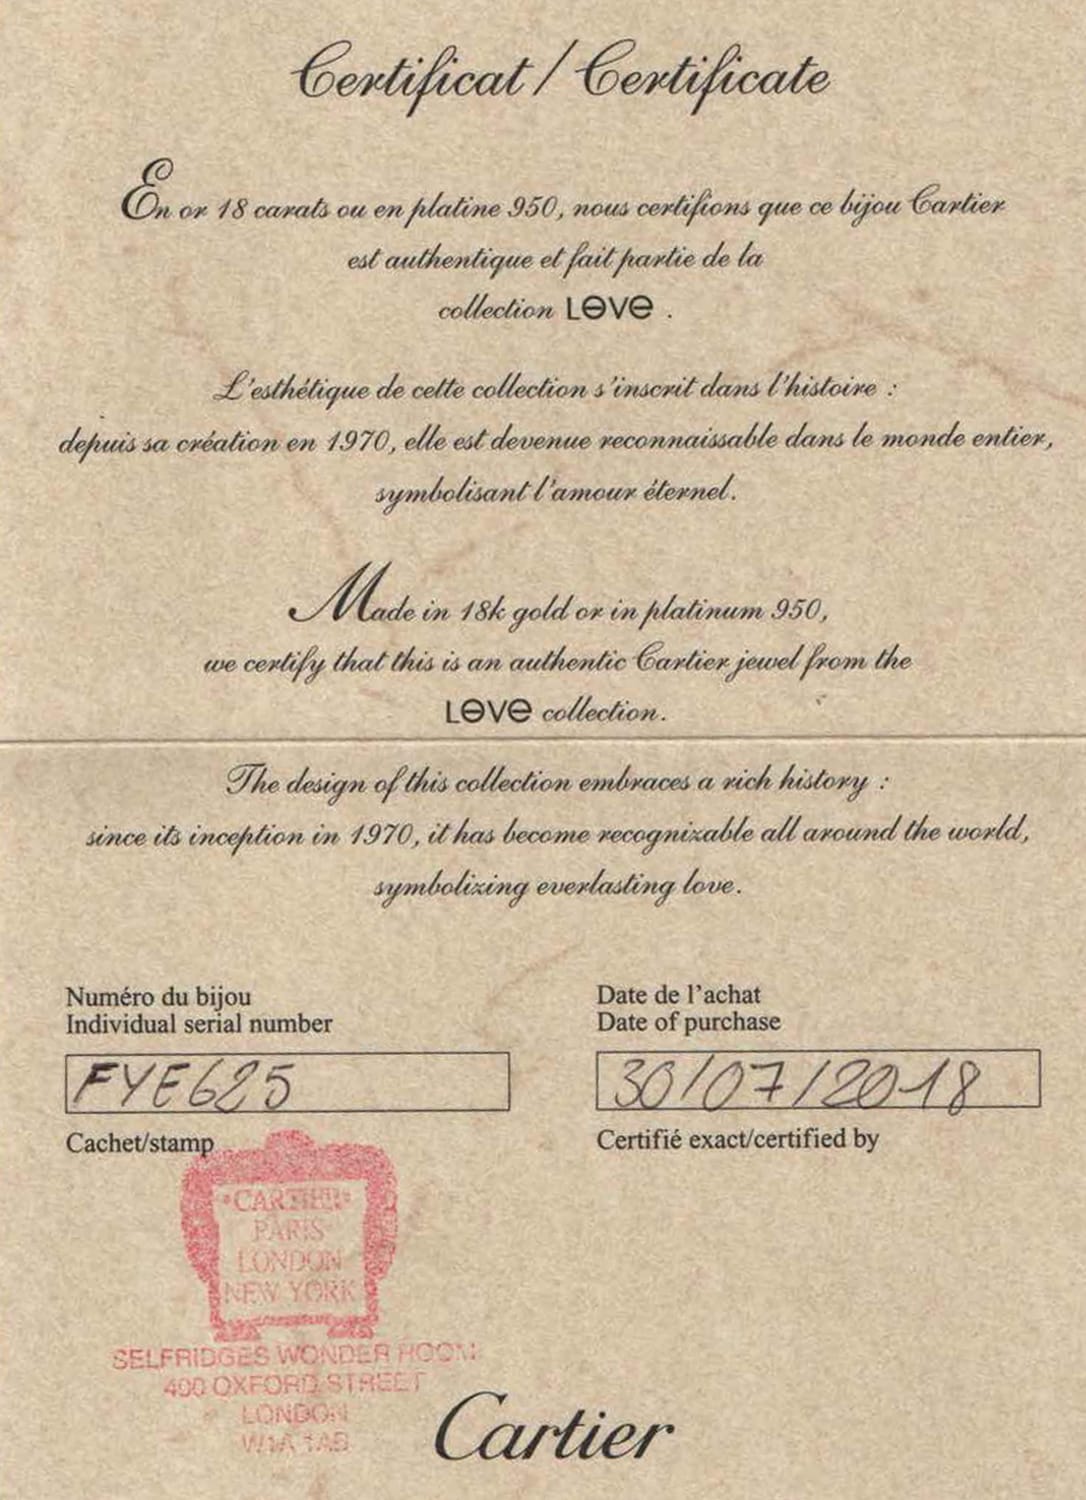 Certificat / Certificate
En or 18 carats ou en platine 950, nous certifions que ce bijou Cartier
est authentique et fait partie de la
collection LOVE .
L'esthétique de cette collection s'inscrit dans l'histoire :
depuis sa création en 1970, elle est devenue reconnaissable dans le monde entier,
symbolisant l'amour éternel.
Made in 18k gold or in platinum 950,
we certify that this is an authentic Cartier jewel from the
LOVE collection.
The design of this collection embraces a rich history :
since its inception in 1970, it has become recognizable all around the world,
symbolizing everlasting love.
Numéro du bijou
Individual serial number
FYE625
Date de l'achat
Date of purchase
30/07/2018
Cachet/stamp
Certifié exact/certified by
CARTIER
PARIS
LONDON
NEW YORK
SELFRIDGES WONDER ROOM
400 OXFORD STREET
LONDON
W1A 1AB
Cartier